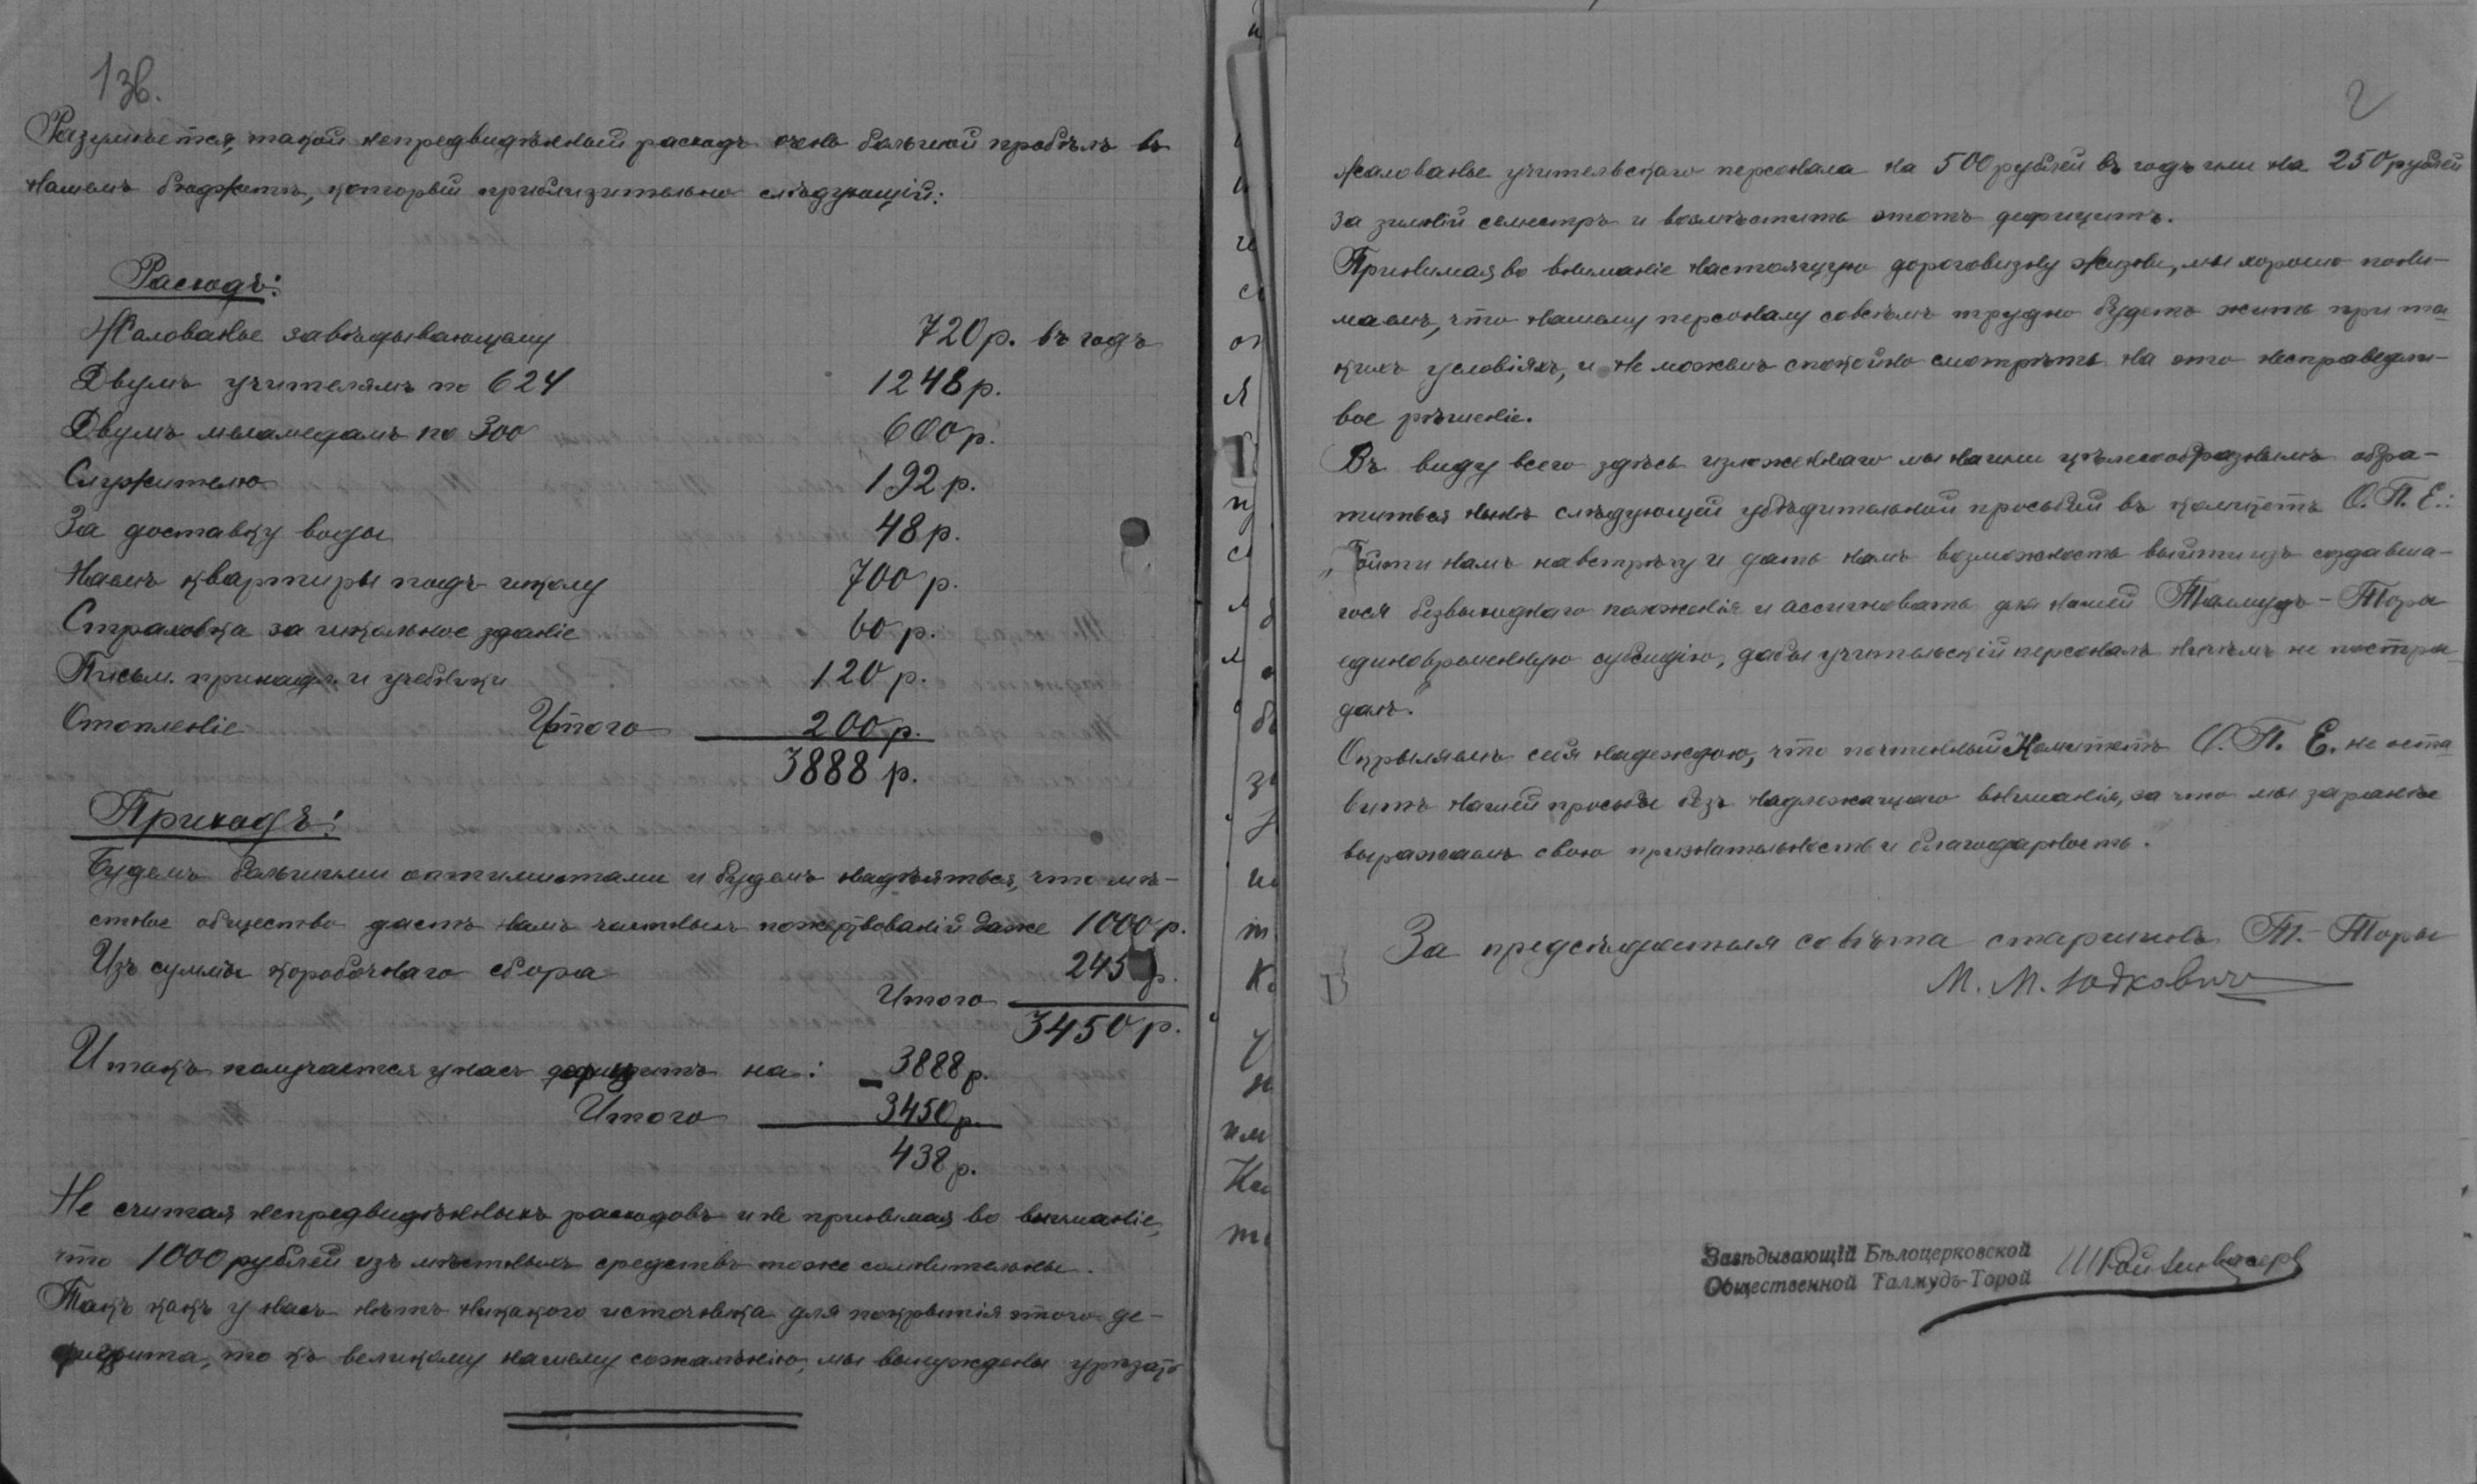 13б.
Разумѣется, такой непредвидѣнный расходъ очень большой пробѣлъ въ
нашемъ бюджетѣ, который приблизительно слѣдующій:
Расходъ:
Жалованье завѣдывающему 720 р. въ годъ
Двумъ учителямъ по 624 1248 р.
Двумъ меламедамъ по 300 600 р.
Служителю 192 р.
За доставку воды 48 р.
Наемъ квартиры подъ школу 700 р.
Страховка за школьное зданіе 60 р.
Письм. принадл. и учебники 120 р.
Отопленіе Итого 200 р.
3888 р.
Приходъ:
Будемъ большими оптимистами и будемъ надѣяться, что мѣ-
стное общество дастъ намъ частныхъ пожертвованій даже 1000 р.
Изъ суммы коробочнаго сбора 245 р.
Итого 3450 р.
Итакъ получается у насъ дефицитъ на: - 3888 р.
Итого 3450 р.
438 р.
Не считая непредвидѣнныхъ расходовъ и не принимая во вниманіе,
что 1000 рублей изъ мѣстныхъ средствъ тоже сомнительны.
Такъ какъ у насъ нѣтъ никакого источника для покрытія этого де-
фицита, то къ великому нашему сожалѣнію, мы вынуждены урѣзать
2
жалованье учительскаго персонала на 500 рублей въ годъ или на 250 рублей
за зимній семестръ и возмѣстить этотъ дефицитъ.
Принимая во вниманіе настоящую дороговизну жизни, мы хорошо пони-
маемъ, что нашему персоналу совсѣмъ трудно будетъ жить при та-
кихъ условіяхъ, и не можемъ спокойно смотрѣть на это несправедли-
вое рѣшеніе.
Въ виду всего здѣсь изложеннаго мы нашли цѣлесообразнымъ обра-
титься нынѣ слѣдующей убѣдительной просьбой въ комитетъ О. П. Е.:
„Пойти намъ навстрѣчу и дать намъ возможность выйти изъ создавша-
гося безвыходнаго положенія и ассигновать для нашей Талмудъ-Торы
единовременную субсидію, дабы учительскій персоналъ ничѣмъ не постра-
далъ."
Окрыляемъ себя надеждою, что почтенный Комитетъ О. П. Е. не оста-
витъ нашей просьбы безъ надлежащаго вниманія, за что мы заранѣе
выражаемъ свою признательность и благодарность.
За предсѣдателя совѣта старшинъ Т.-Торы
М. М. Юдковичъ
Завѣдывающій Бѣлоцерковской
Общественной Талмудъ-Торой